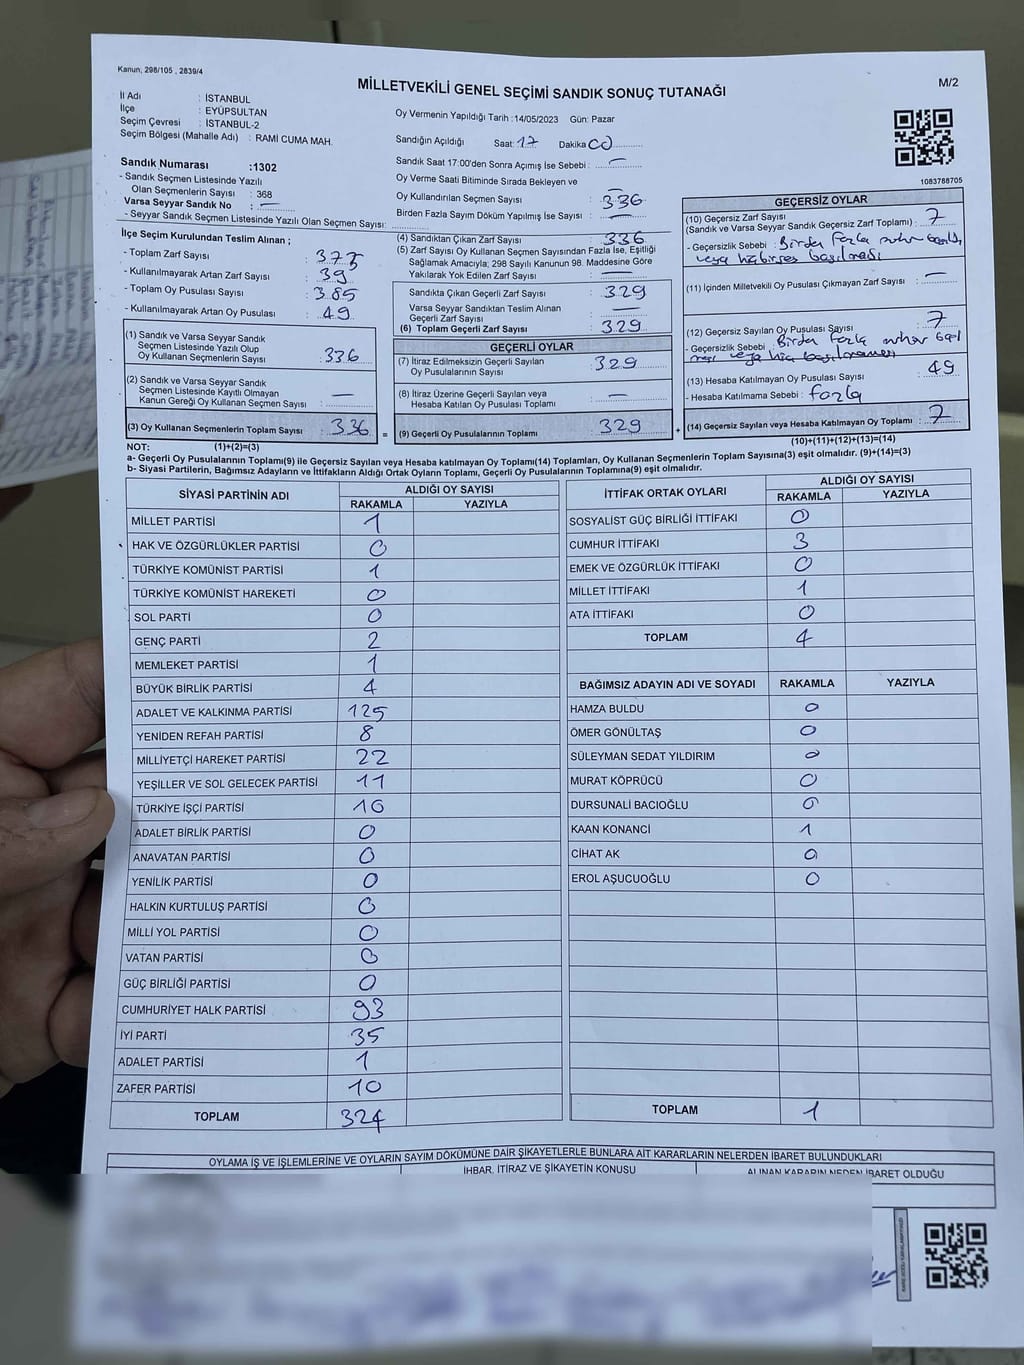 Kanun, 298/105 , 2839/4
MİLLETVEKİLİ GENEL SEÇİMİ SANDIK SONUÇ TUTANAĞI
M/2
İl Adı : İSTANBUL
İlçe : EYÜPSULTAN
Seçim Çevresi : İSTANBUL-2
Seçim Bölgesi (Mahalle Adı) : RAMİ CUMA MAH.
Sandık Numarası :1302
- Sandık Seçmen Listesinde Yazılı
Olan Seçmenlerin Sayısı : 368
Varsa Seyyar Sandık No : —
- Seyyar Sandık Seçmen Listesinde Yazılı Olan Seçmen Sayısı:
İlçe Seçim Kurulundan Teslim Alınan ;
- Toplam Zarf Sayısı : 375
- Kullanılmayarak Artan Zarf Sayısı : 39
- Toplam Oy Pusulası Sayısı : 385
- Kullanılmayarak Artan Oy Pusulası : 49
(1) Sandık ve Varsa Seyyar Sandık
Seçmen Listesinde Yazılı Olup
Oy Kullanan Seçmenlerin Sayısı : 336
(2) Sandık ve Varsa Seyyar Sandık
Seçmen Listesinde Kayıtlı Olmayan
Kanun Gereği Oy Kullanan Seçmen Sayısı : —
(3) Oy Kullanan Seçmenlerin Toplam Sayısı : 336 =
Oy Vermenin Yapıldığı Tarih :14/05/2023 Gün: Pazar
Sandığın Açıldığı Saat: 17 Dakika 00
Sandık Saat 17:00'den Sonra Açımış İse Sebebi : —
Oy Verme Saati Bitiminde Sırada Bekleyen ve
Oy Kullandırılan Seçmen Sayısı : 336
Birden Fazla Sayım Döküm Yapılmış İse Sayısı : —
(4) Sandıktan Çıkan Zarf Sayısı : 336
(5) Zarf Sayısı Oy Kullanan Seçmen Sayısından Fazla İse, Eşitliği
Sağlamak Amacıyla; 298 Sayılı Kanunun 98. Maddesine Göre
Yakılarak Yok Edilen Zarf Sayısı : —
Sandıkta Çıkan Geçerli Zarf Sayısı : 329
Varsa Seyyar Sandıktan Teslim Alınan
Geçerli Zarf Sayısı : —
(6) Toplam Geçerli Zarf Sayısı : 329
GEÇERLİ OYLAR
(7) İtiraz Edilmeksizin Geçerli Sayılan
Oy Pusulalarının Sayısı : 329
(8) İtiraz Üzerine Geçerli Sayılan veya
Hesaba Katılan Oy Pusulası Toplamı : —
(9) Geçerli Oy Pusulalarının Toplamı : 329 +
1083788705
GEÇERSİZ OYLAR
(10) Geçersiz Zarf Sayısı
(Sandık ve Varsa Seyyar Sandık Geçersiz Zarf Toplamı) : 7
- Geçersizlik Sebebi : Birden Fazla mühür
veya
(11) İçinden Milletvekili Oy Pusulası Çıkmayan Zarf Sayısı : —
(12) Geçersiz Sayılan Oy Pusulası Sayısı : 7
- Geçersizlik Sebebi : Birden Fazla mühür
veya hiç
(13) Hesaba Katılmayan Oy Pusulası Sayısı : 49
- Hesaba Katılmama Sebebi : Fazla
(14) Geçersiz Sayılan veya Hesaba Katılmayan Oy Toplamı : 7
NOT: (1)+(2)=(3)
(10)+(11)+(12)+(13)=(14)
a- Geçerli Oy Pusulalarının Toplamı(9) ile Geçersiz Sayılan veya Hesaba katılmayan Oy Toplamı(14) Toplamları, Oy Kullanan Seçmenlerin Toplam Sayısına(3) eşit olmalıdır. (9)+(14)=(3)
b- Siyasi Partilerin, Bağımsız Adayların ve İttifakların Aldığı Ortak Oyların Toplamı, Geçerli Oy Pusulalarının Toplamına(9) eşit olmalıdır.
SİYASİ PARTİNİN ADI ALDIĞI OY SAYISI
RAKAMLA YAZIYLA
MİLLET PARTİSİ 1
HAK VE ÖZGÜRLÜKLER PARTİSİ 0
TÜRKİYE KOMÜNİST PARTİSİ 1
TÜRKİYE KOMÜNİST HAREKETİ 0
SOL PARTİ 0
GENÇ PARTİ 2
MEMLEKET PARTİSİ 1
BÜYÜK BİRLİK PARTİSİ 4
ADALET VE KALKINMA PARTİSİ 125
YENİDEN REFAH PARTİSİ 8
MİLLİYETÇİ HAREKET PARTİSİ 22
YEŞİLLER VE SOL GELECEK PARTİSİ 11
TÜRKİYE İŞÇİ PARTİSİ 10
ADALET BİRLİK PARTİSİ 0
ANAVATAN PARTİSİ 0
YENİLİK PARTİSİ 0
HALKIN KURTULUŞ PARTİSİ 0
MİLLİ YOL PARTİSİ 0
VATAN PARTİSİ 0
GÜÇ BİRLİĞİ PARTİSİ 0
CUMHURİYET HALK PARTİSİ 93
İYİ PARTİ 35
ADALET PARTİSİ 1
ZAFER PARTİSİ 10
TOPLAM 324
İTTİFAK ORTAK OYLARI ALDIĞI OY SAYISI
RAKAMLA YAZIYLA
SOSYALİST GÜÇ BİRLİĞİ İTTİFAKI 0
CUMHUR İTTİFAKI 3
EMEK VE ÖZGÜRLÜK İTTİFAKI 0
MİLLET İTTİFAKI 1
ATA İTTİFAKI 0
TOPLAM 4
BAĞIMSIZ ADAYIN ADI VE SOYADI RAKAMLA YAZIYLA
HAMZA BULDU 0
ÖMER GÖNÜLTAŞ 0
SÜLEYMAN SEDAT YILDIRIM 0
MURAT KÖPRÜCÜ 0
DURSUNALİ BACIOĞLU 0
KAAN KONANCİ 1
CİHAT AK 0
EROL AŞUCUOĞLU 0
TOPLAM 1
OYLAMA İŞ VE İŞLEMLERİNE VE OYLARIN SAYIM DÖKÜMÜNE DAİR ŞİKAYETLERLE BUNLARA AİT KARARLARIN NELERDEN İBARET BULUNDUKLARI
İHBAR, İTİRAZ VE ŞİKAYETİN KONUSU
ALINAN KARARIN NEDEN İBARET OLDUĞU